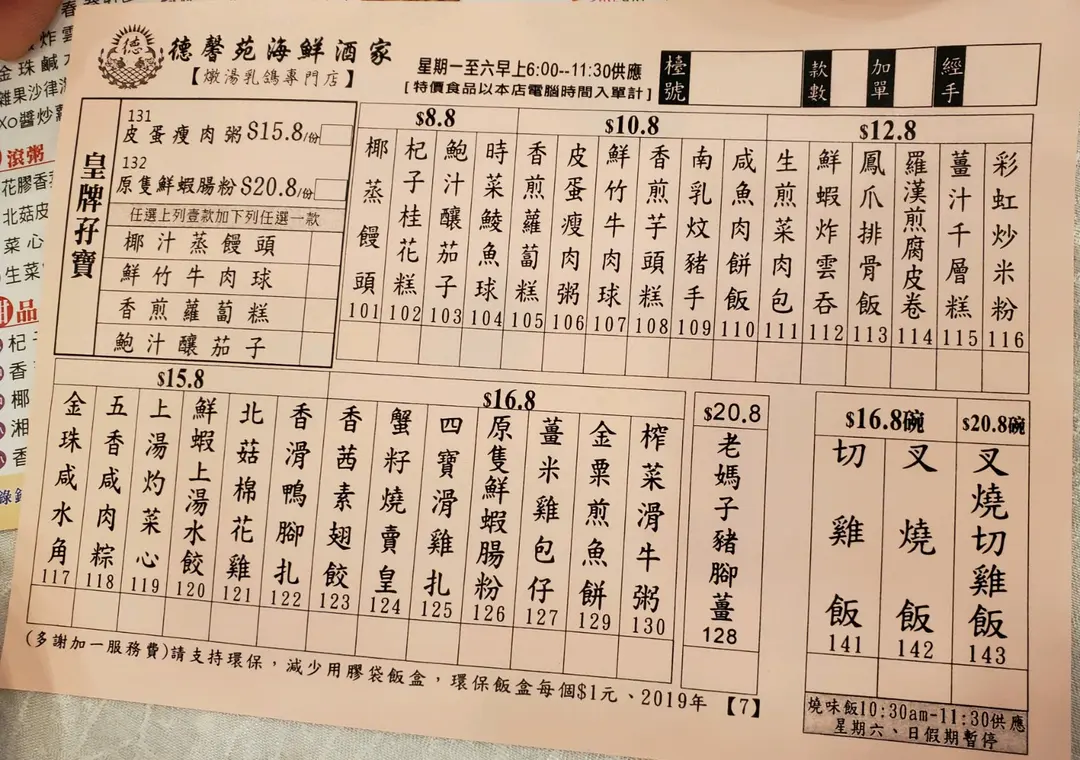 德馨苑海鮮酒家
【燉湯乳鴿專門店】
德
星期一至六早上6:00--11:30供應
[特價食品以本店電腦時間入單計]
檯號
款數
加單
經手
皇牌孖寶
131
皮蛋瘦肉粥 $15.8/份
132
原隻鮮蝦腸粉 $20.8/份
任選上列壹款加下列任選一款
椰汁蒸饅頭
鮮竹牛肉球
香煎蘿蔔糕
鮑汁釀茄子
$8.8
椰蒸饅頭 101
杞子桂花糕 102
鮑汁釀茄子 103
時菜鯪魚球 104
$10.8
香煎蘿蔔糕 105
皮蛋瘦肉粥 106
鮮竹牛肉球 107
香煎芋頭糕 108
南乳炆豬手 109
$12.8
咸魚肉餅飯 110
生煎菜肉包 111
鮮蝦炸雲吞 112
鳳爪排骨飯 113
羅漢煎腐皮卷 114
薑汁千層糕 115
彩虹炒米粉 116
$15.8
金珠咸水角 117
五香咸肉粽 118
上湯灼菜心 119
鮮蝦上湯水餃 120
北菇棉花雞 121
香滑鴨腳扎 122
$16.8
香茜素翅餃 123
蟹籽燒賣皇 124
四寶滑雞扎 125
原隻鮮蝦腸粉 126
薑米雞包仔 127
金粟煎魚餅 129
榨菜滑牛粥 130
$20.8
老媽子豬腳薑 128
$16.8碗
切雞飯 141
叉燒飯 142
$20.8碗
叉燒切雞飯 143
燒味飯10:30am-11:30供應
星期六、日假期暫停
(多謝加一服務費)請支持環保，減少用膠袋飯盒，環保飯盒每個$1元、2019年【7】
滾粥
花膠香
北菇皮
菜心
生菜
品
杞子
香
椰
湘
香